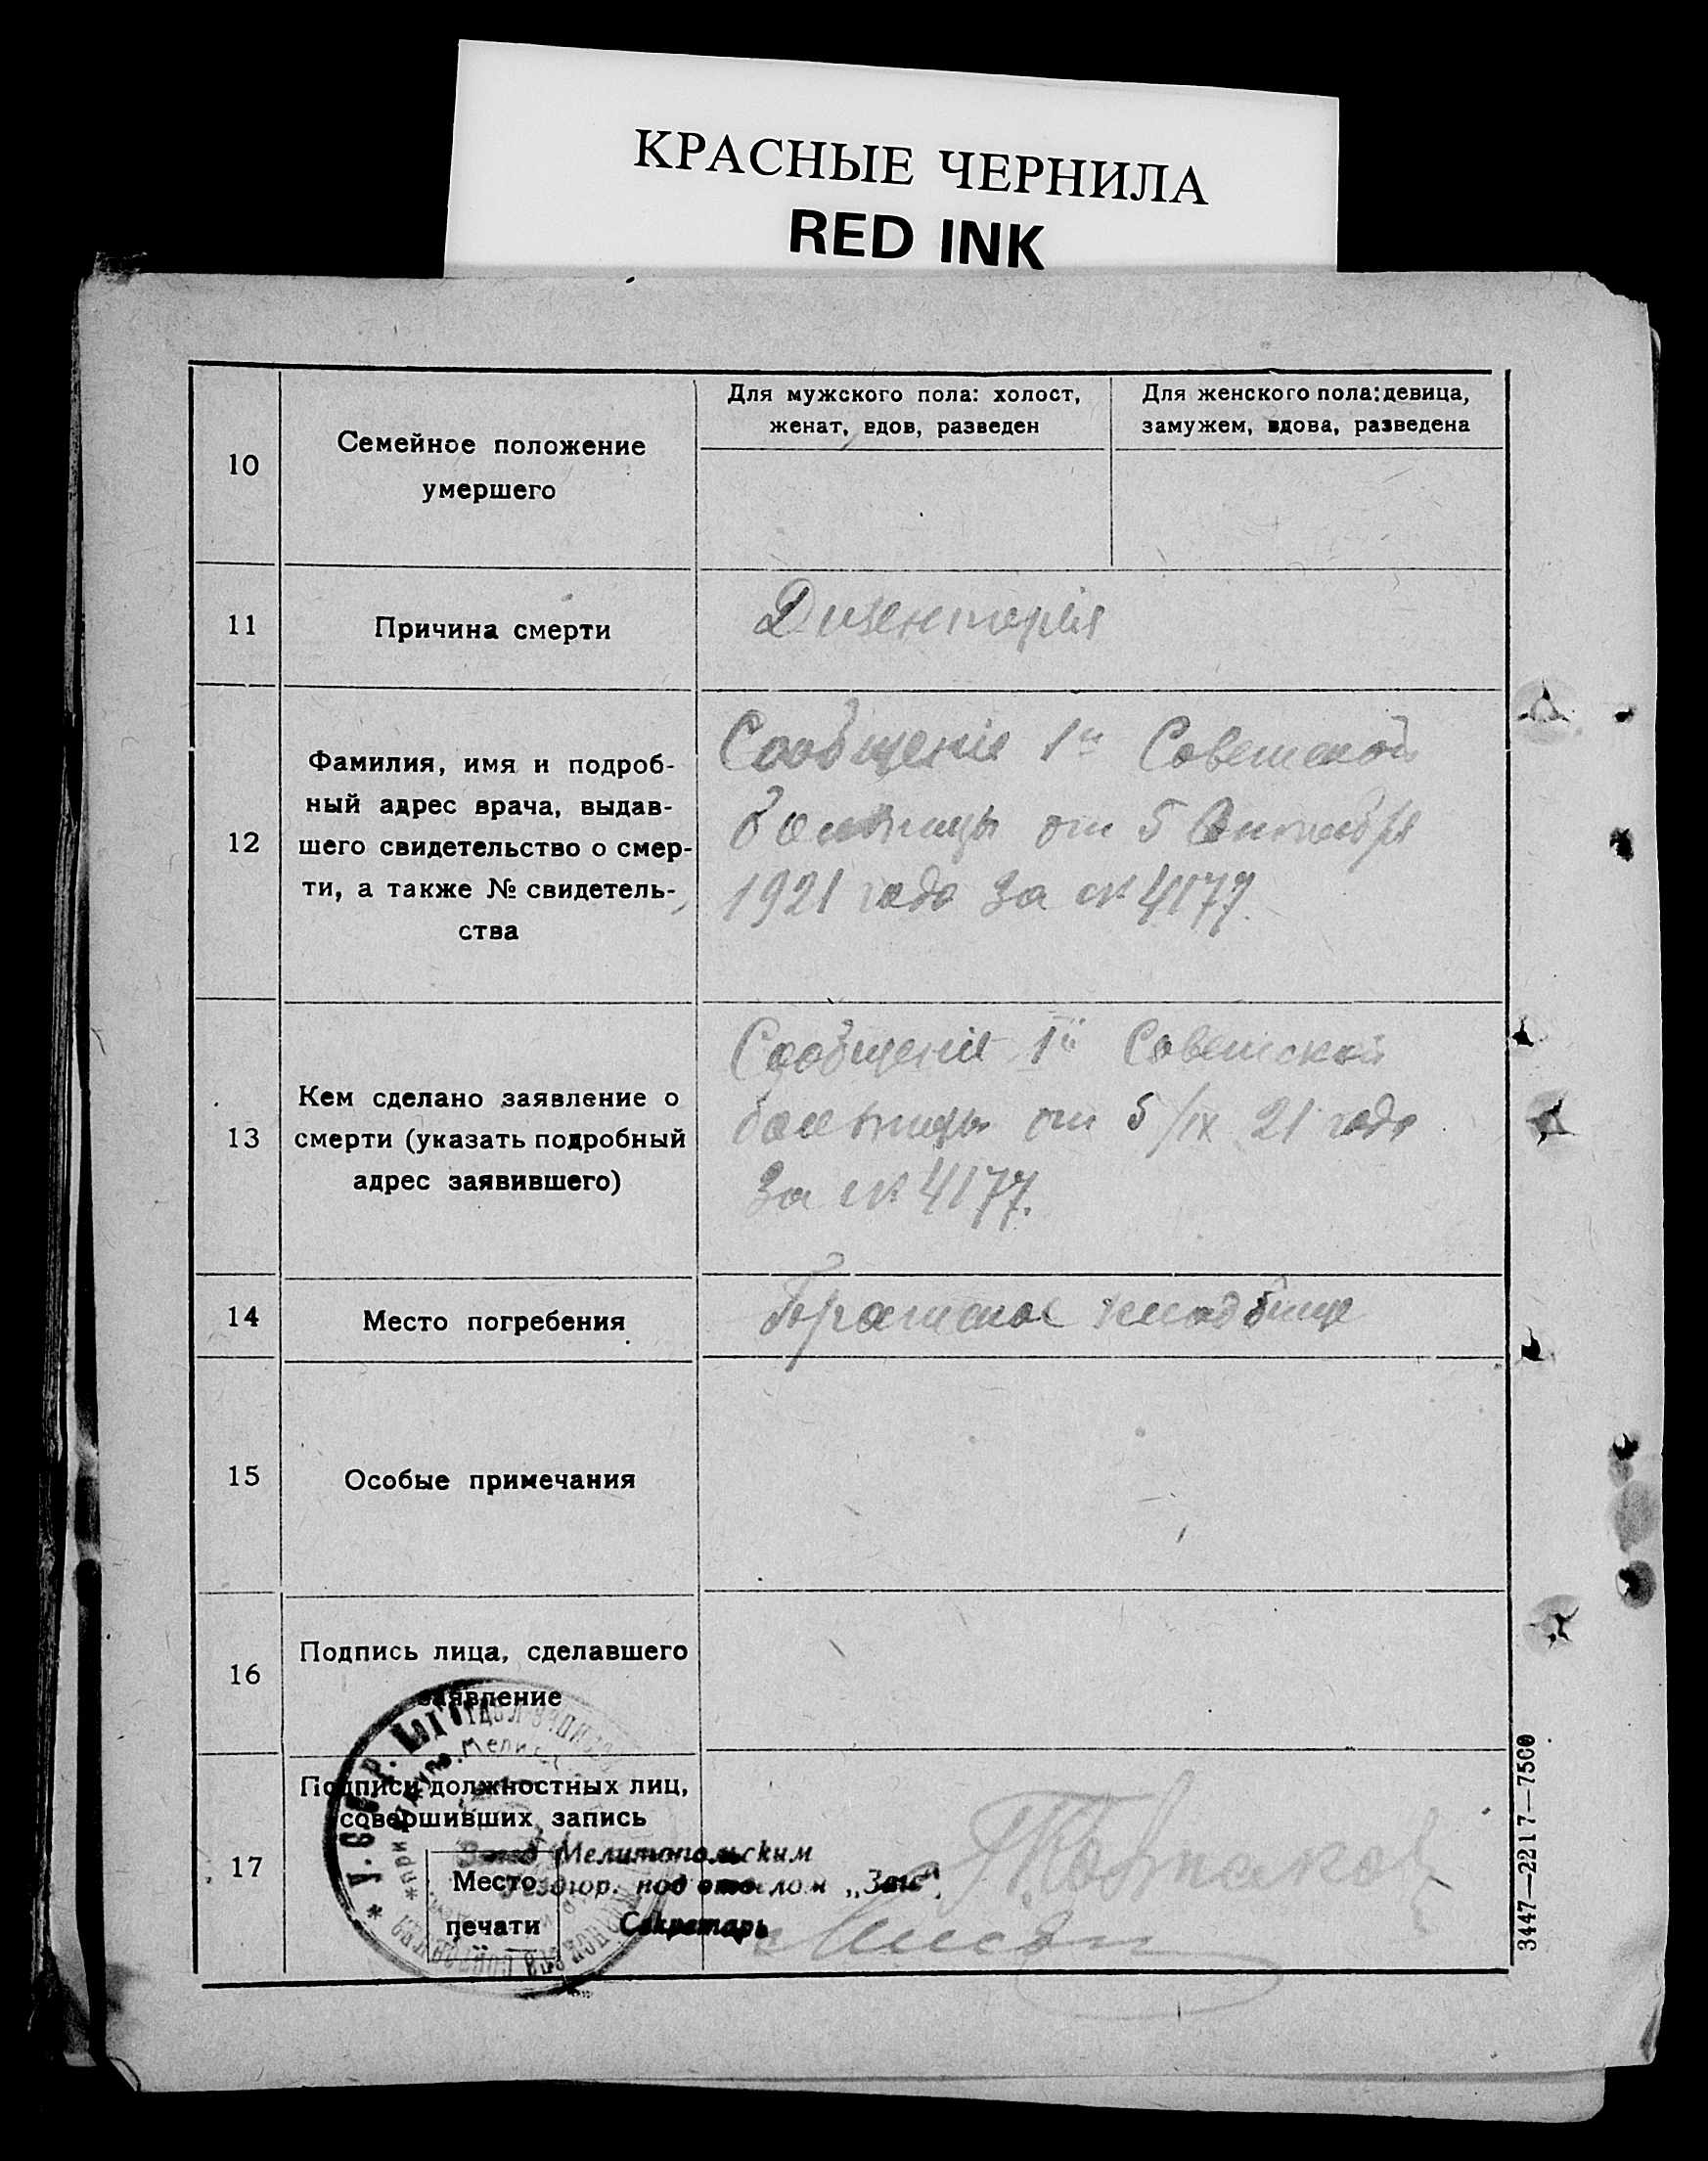 КРАСНЫЕ ЧЕРНИЛА
RED INK
10
Семейное положение
умершего
Для мужского пола: холост,
женат, вдов, разведен
Для женского пола: девица,
замужем, вдова, разведена
11
Причина смерти
Дизентерія
12
Фамилия, имя и подроб-
ный адрес врача, выдав-
шего свидетельство о смер-
ти, а также № свидетель-
ства
Сообщеніе 1й Советской
больницы от 5 Октября
1921 года За № 4177.
13
Кем сделано заявление о
смерти (указать подробный
адрес заявившего)
Сообщеніе 1й Советской
больницы от 5/IX 21 года
За № 4177.
14
Место погребения
Братское кладбище
15
Особые примечания
16
Подпись лица, сделавшего
заявление
17
Подписи должностных лиц,
совершивших запись
Место
печати
Мелитопольским
под отделом „Загс“.
Секретарь
3447—2217—7500